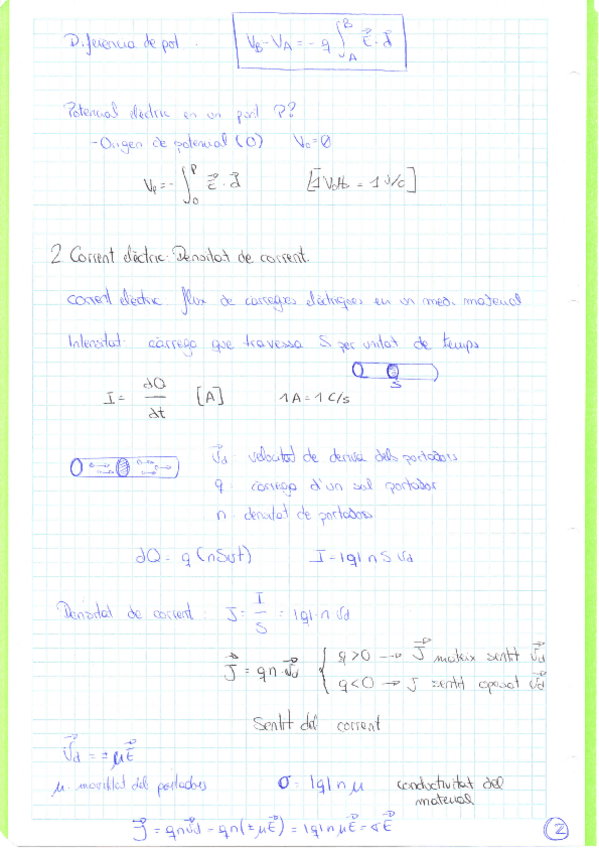 Diferència de pot. V_B - V_A = - q ∫_A^B E⃗ · d⃗
Potencial elèctric en un punt P?
- Origen de potencial (O) V_0 = 0
V_P = - ∫_O^P E⃗ · d⃗ [1 Volt = 1 J/C]
2 Corrent elèctric. Densitat de corrent.
corrent elèctric. flux de càrregues elèctriques en un medi material
Intensitat: càrrega que travessa S per unitat de temps
S
I = dQ/dt [A] 1A = 1 C/s
v⃗_d: velocitat de deriva dels portadors
q: càrrega d'un sol portador
n: densitat de portadors
dQ = q (nSvt) I = |q| n S v_d
Densitat de corrent: J = I/S = |q| · n v_d
J⃗ = q n · v⃗_d { q>0 → J⃗ mateix sentit v⃗_d
q<0 → J sentit oposat v⃗_d
Sentit del corrent
v⃗_d = ± μE⃗
μ: mobilitat dels portadors σ = |q| n μ conductivitat del
material
J⃗ = q n v⃗_d = q n (± μE⃗) = |q| n μE⃗ = σE⃗
2